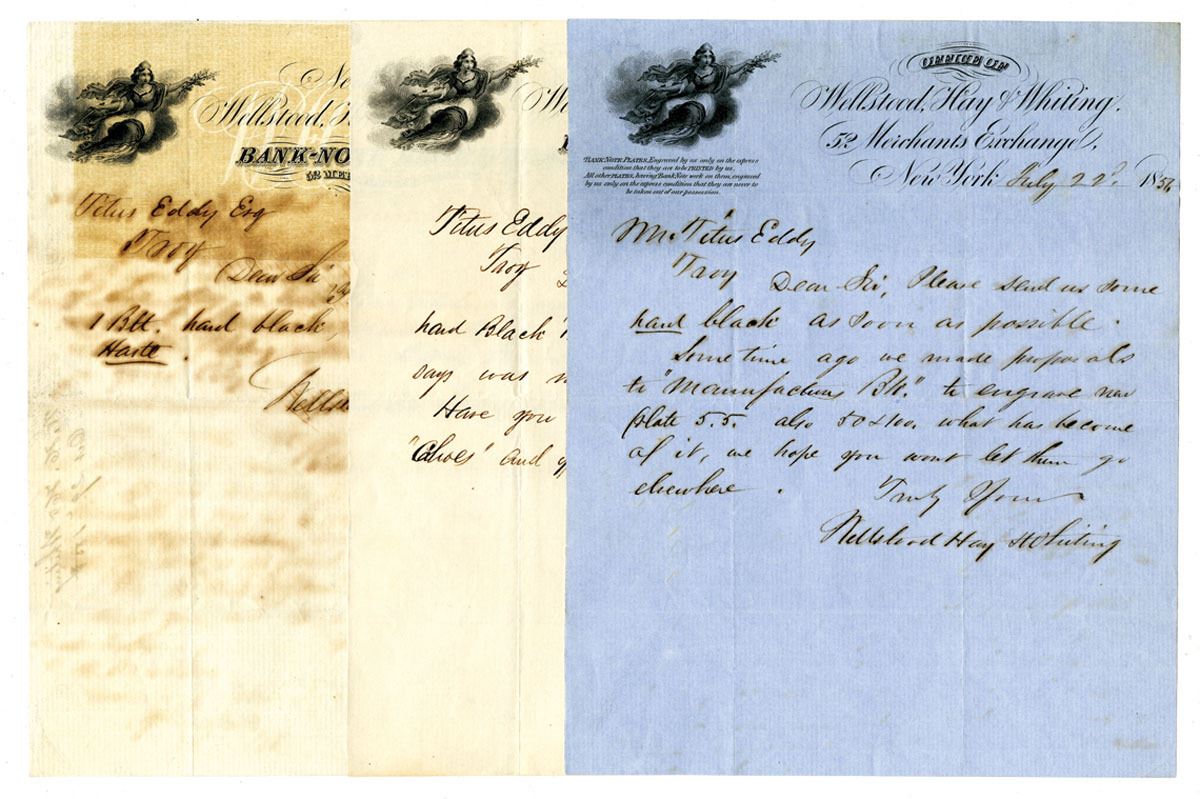 Wellstood,
BANK-NO
52 MER
Titus Eddy Esq
Troy
Dear Sir
1 Blt. hard black,
Haste.
Titus Eddy
Troy
hard Black
says was
Have you
"Cohoes" and
OFFICE OF
Wellstood, Hay & Whiting,
52 Merchants Exchange,
New York July 22d 1856
BANK NOTE PLATES, Engraved by us only on the express
condition that they are to be PRINTED by us,
All other PLATES, having Bank Note work on them, engraved
by us only on the express condition that they are never to
be taken out of our possession.
Mr. Titus Eddy
Troy Dear Sir, Please send us some
hard black as soon as possible.
Some time ago we made proposals
to "Manufacturers Bk." to engrave new
plate 5.5. also 50 & 100. what has become
of it, we hope you wont let them go
elsewhere.
Truly Yours
Wellstood Hay & Whiting